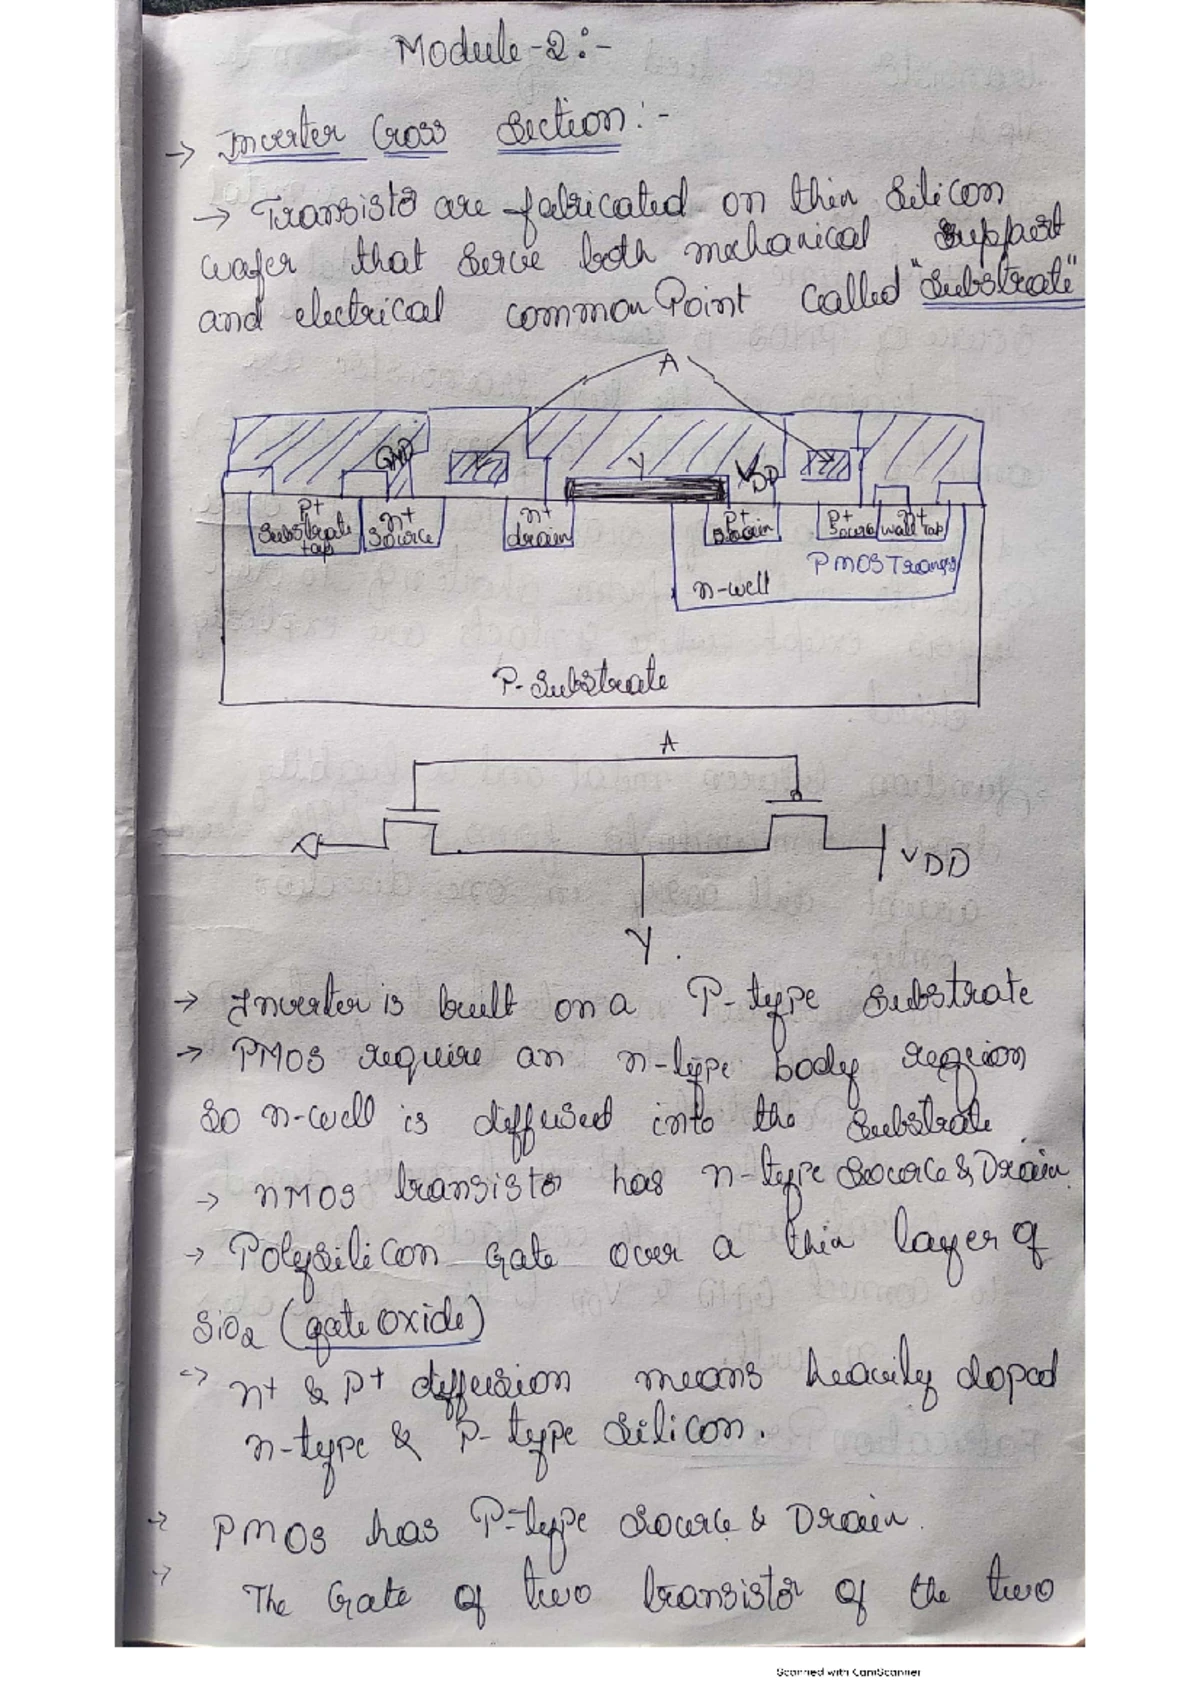 Module-2:-
→ Inverter Cross Section:-
→ Transistor are fabricated on thin Silicon
wafer that serve both mechanical support
and electrical common Point called "Substrate"
A
GND
Y
VDD
P+ Substrate tap
n+ Source
n+ drain
P+ Drain
P+ Source
n+ wall tap
PMOS Transis
n-well
P-Substrate
A
VDD
Y.
→ Inverter is built on a P-type Substrate
→ PMOS require an n-type body region
so n-well is diffused into the Substrate.
→ nMOS transistor has n-type Source & Drain.
→ Polysilicon Gate over a thin layer of
SiO2 (gate oxide)
→ n+ & P+ diffusion means heavily doped
n-type & P-type Silicon.
→ PMOS has P-type Source & Drain.
→ The Gate of two transistor of the two
Scanned with CamScanner